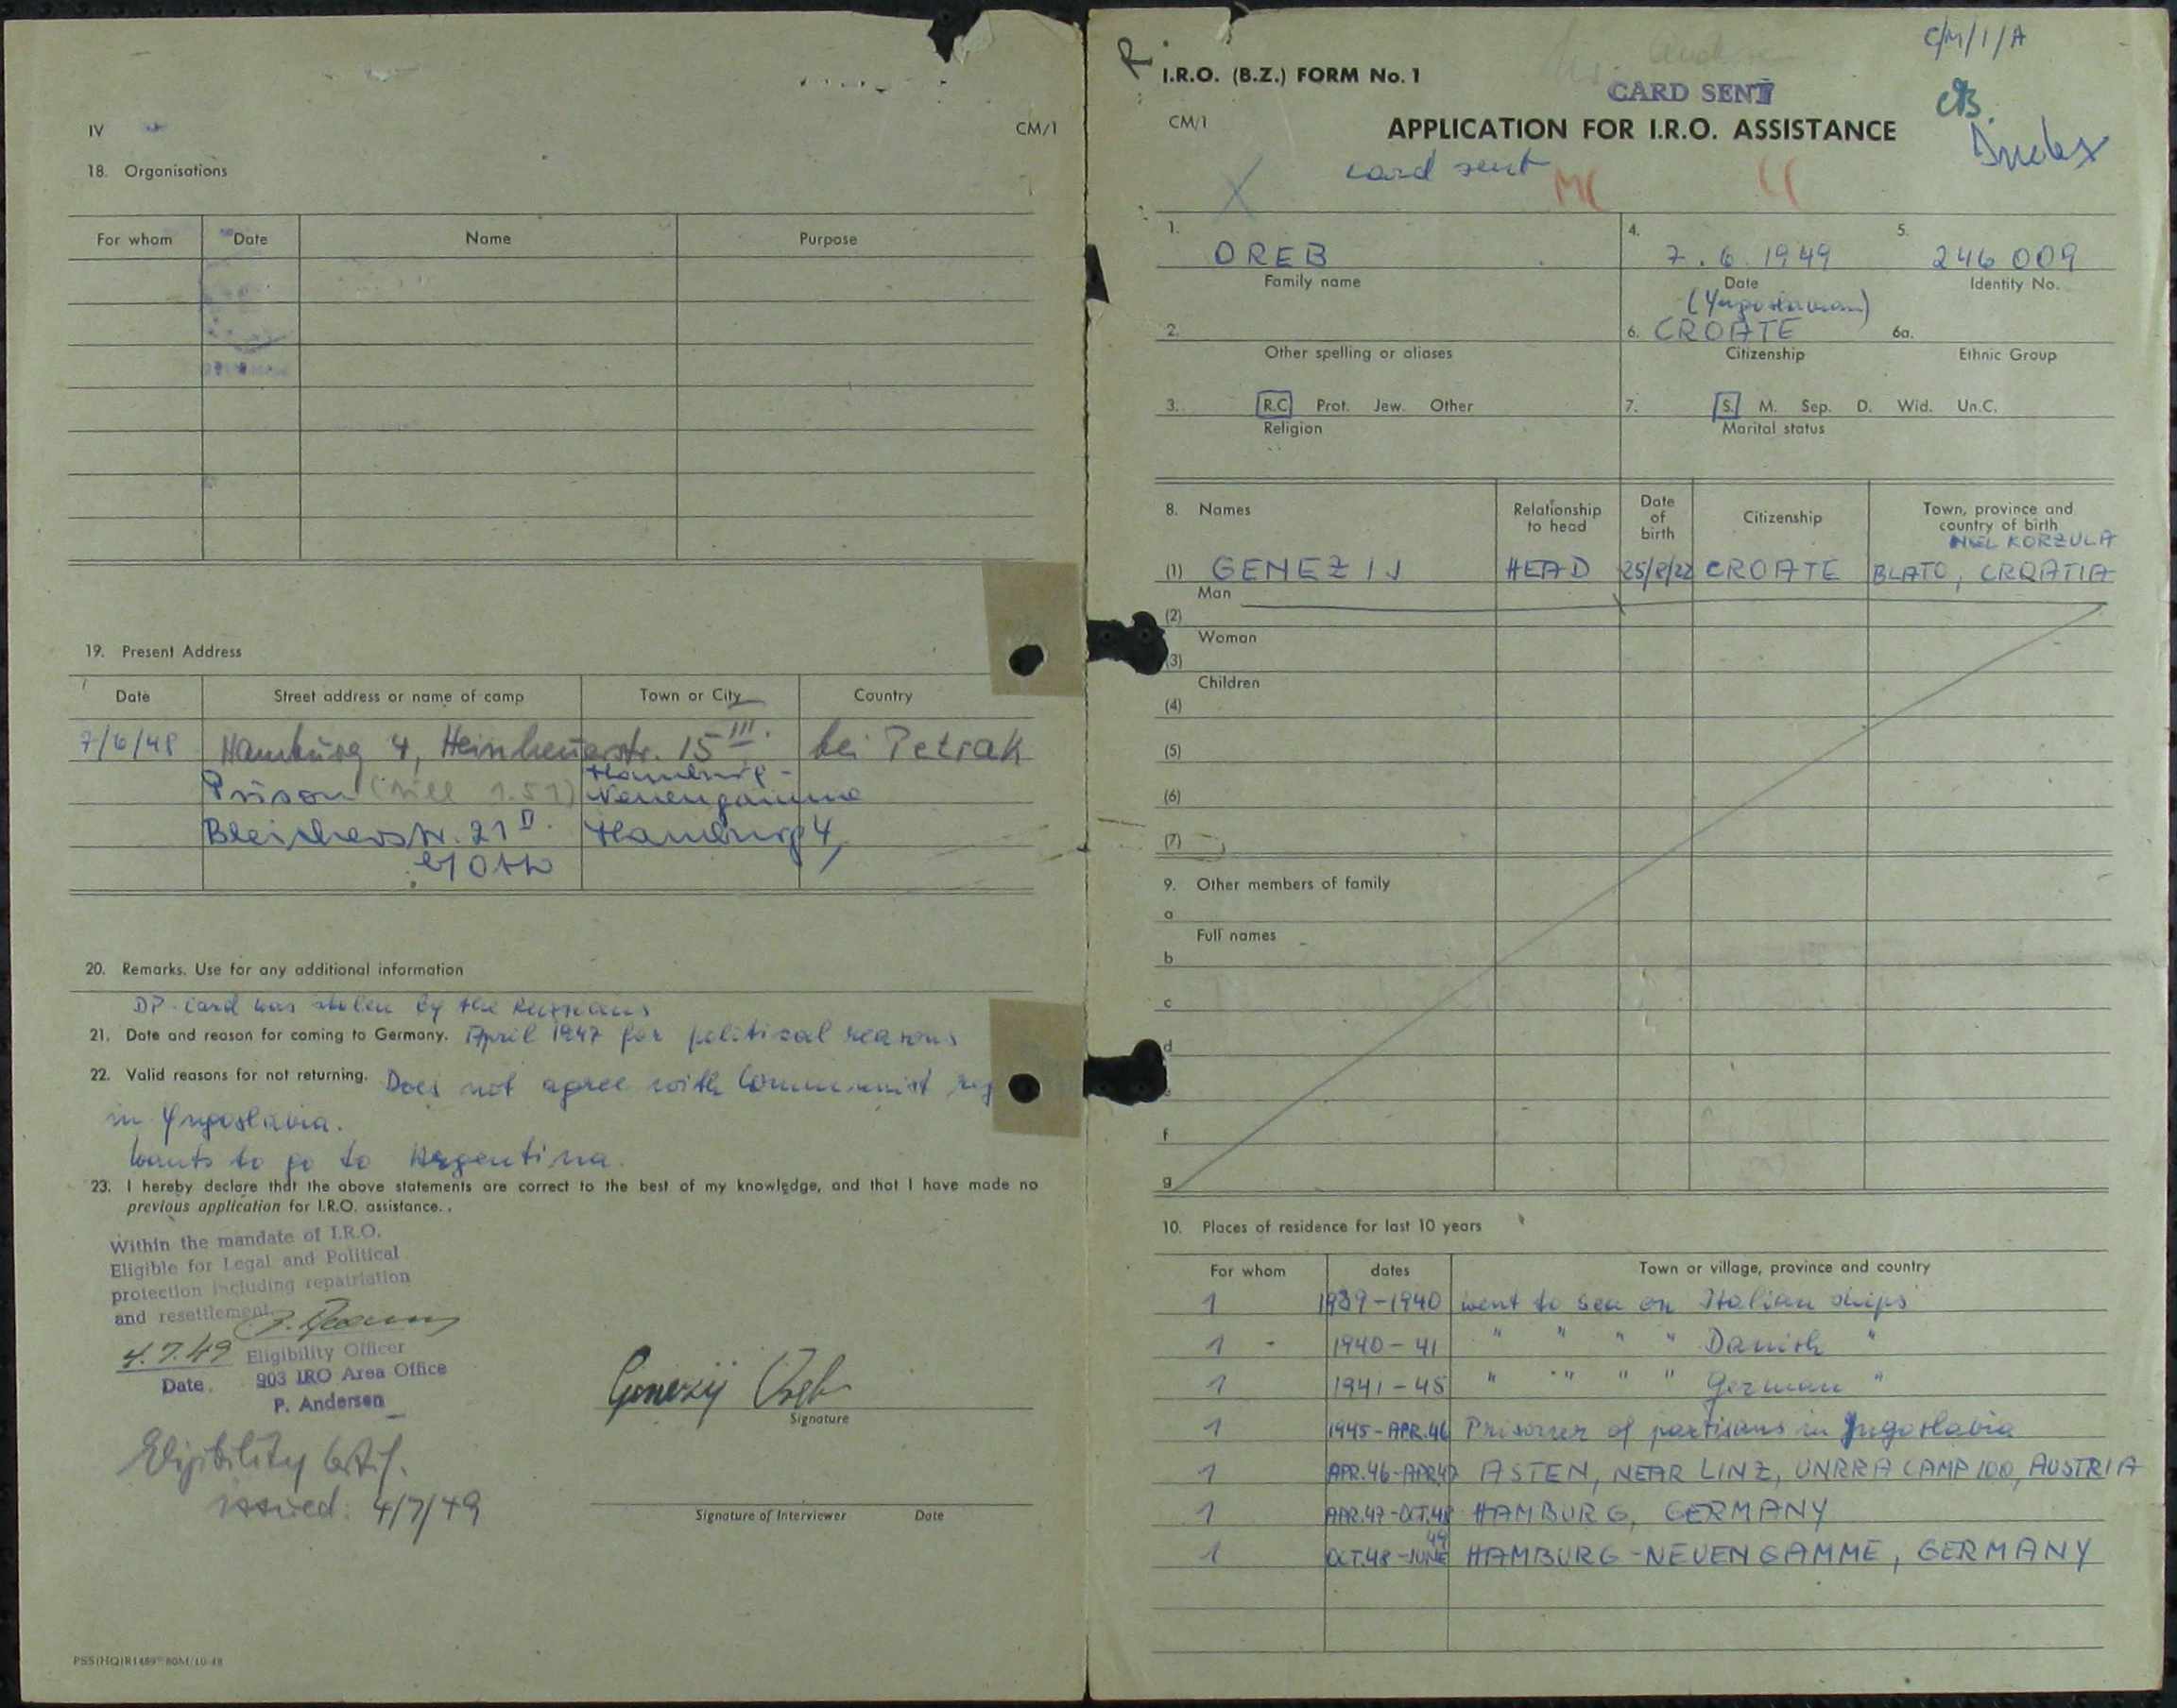 IV
CM/1
18. Organisations
For whom Date Name Purpose
19. Present Address
Date Street address or name of camp Town or City Country
7/6/48 Hamburg 4, Heinhoyerstr. 15 III. bei Petrak
Prison (till 1.51) Hamburg-
Neuengamme
Bleicherstr. 21 II. Hamburg 4,
b/ Otto
20. Remarks. Use for any additional information
DP-card was stolen by the Russians
21. Date and reason for coming to Germany. April 1947 for political reasons
22. Valid reasons for not returning. Does not agree with Communist reg
in Yugoslavia.
Wants to go to Argentina.
23. I hereby declare that the above statements are correct to the best of my knowledge, and that I have made no
previous application for I.R.O. assistance..
Within the mandate of I.R.O.
Eligible for Legal and Political
protection including repatriation
and resettlement
4.7.49 Eligibility Officer
Date. 903 IRO Area Office
P. Andersen
Genezij Oreb
Signature
Eligibility Certif.
issued: 4/7/49
Signature of Interviewer Date
PSS(HQ)R1489 80M/10-48
R
C/M/1/A
I.R.O. (B.Z.) FORM No. 1
CARD SENT
CM/1
APPLICATION FOR I.R.O. ASSISTANCE
Index
card sent
1. OREB
Family name
4. 7.6.1949
Date
5. 246 009
Identity No.
(Yugoslavian)
2.
Other spelling or aliases
6. CROATE
Citizenship
6a.
Ethnic Group
3. R.C Prot. Jew. Other
Religion
7. S. M. Sep. D. Wid. Un.C.
Marital status
8. Names Relationship to head Date of birth Citizenship Town, province and country of birth
KORZULA
(1) GENEZIJ HEAD 25/2/22 CROATE BLATO, CROATIA
Man
(2)
Woman
(3)
Children
(4)
(5)
(6)
(7)
9. Other members of family
a
Full names
b
c
d
e
f
g
10. Places of residence for last 10 years
For whom dates Town or village, province and country
1 1939-1940 went to sea on Italian ships
1 - 1940-41 " " " " Danish "
1 1941-45 " " " " German "
1 1945-APR.46 Prisoner of partisans in Yugoslavia
1 APR.46-APR.47 ASTEN, NEAR LINZ, UNRRA CAMP 100, AUSTRIA
1 APR.47-OCT.48 HAMBURG, GERMANY
1 OCT.48-JUNE 49 HAMBURG-NEUENGAMME, GERMANY